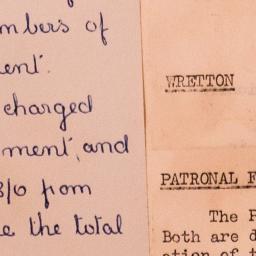 mbers of
ent.
charged
ment, and
3/0 from
the total
WRETTON
PATRONAL F
The P
Both are d
ation of t